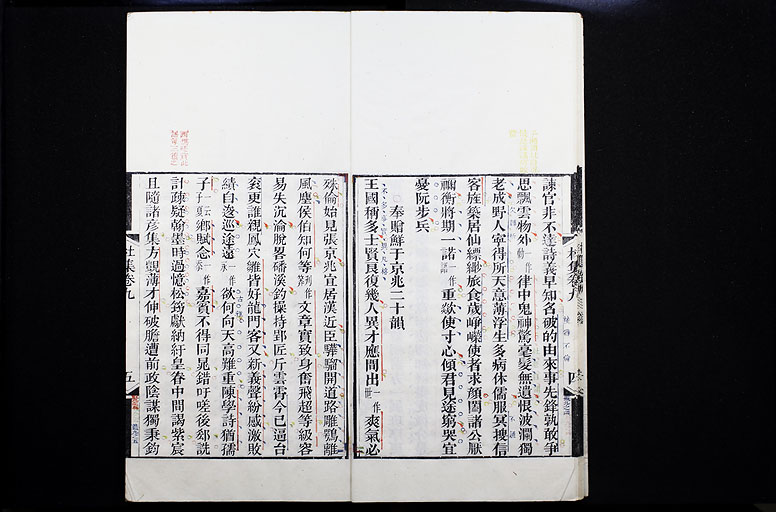 諫官非不達詩義早知名破的由來事先鋒孰敢爭
思飄雲物外一作動律中鬼神驚毫髮無遺恨波瀾獨
老成野人寧得所天意薄浮生多病休儒服冥搜信
客旌築居仙縹緲旅食歲崢嶸使者求顏闔諸公厭
禰衡將期一諾一作諾重欻使寸心傾君見途窮哭宜
憂阮步兵
奉贈鮮于京兆二十韻
王國稱多士賢良復幾人異才應間出一作世爽氣必
殊倫始見張京兆宜居漢近臣驊騮開道路雕鶚離
風塵侯伯知何等文章實致身奮飛超等級容
易失沉淪脫畧磻溪釣操持郢匠斤雲霄今已逼台
袞更誰親鳳穴雛皆好龍門客又新義聲紛感激敗
績自逡巡途遠一作永欲何向天高難重陳學詩猶孺
子鄉賦念嘉賓不得同晁錯吁嗟後郤詵
計疎疑翰墨時過憶松筠獻納紆皇眷中間謁紫宸
且隨諸彥集方覬薄才伸破膽遭前政陰謀獨秉鈞
杜集卷九
五